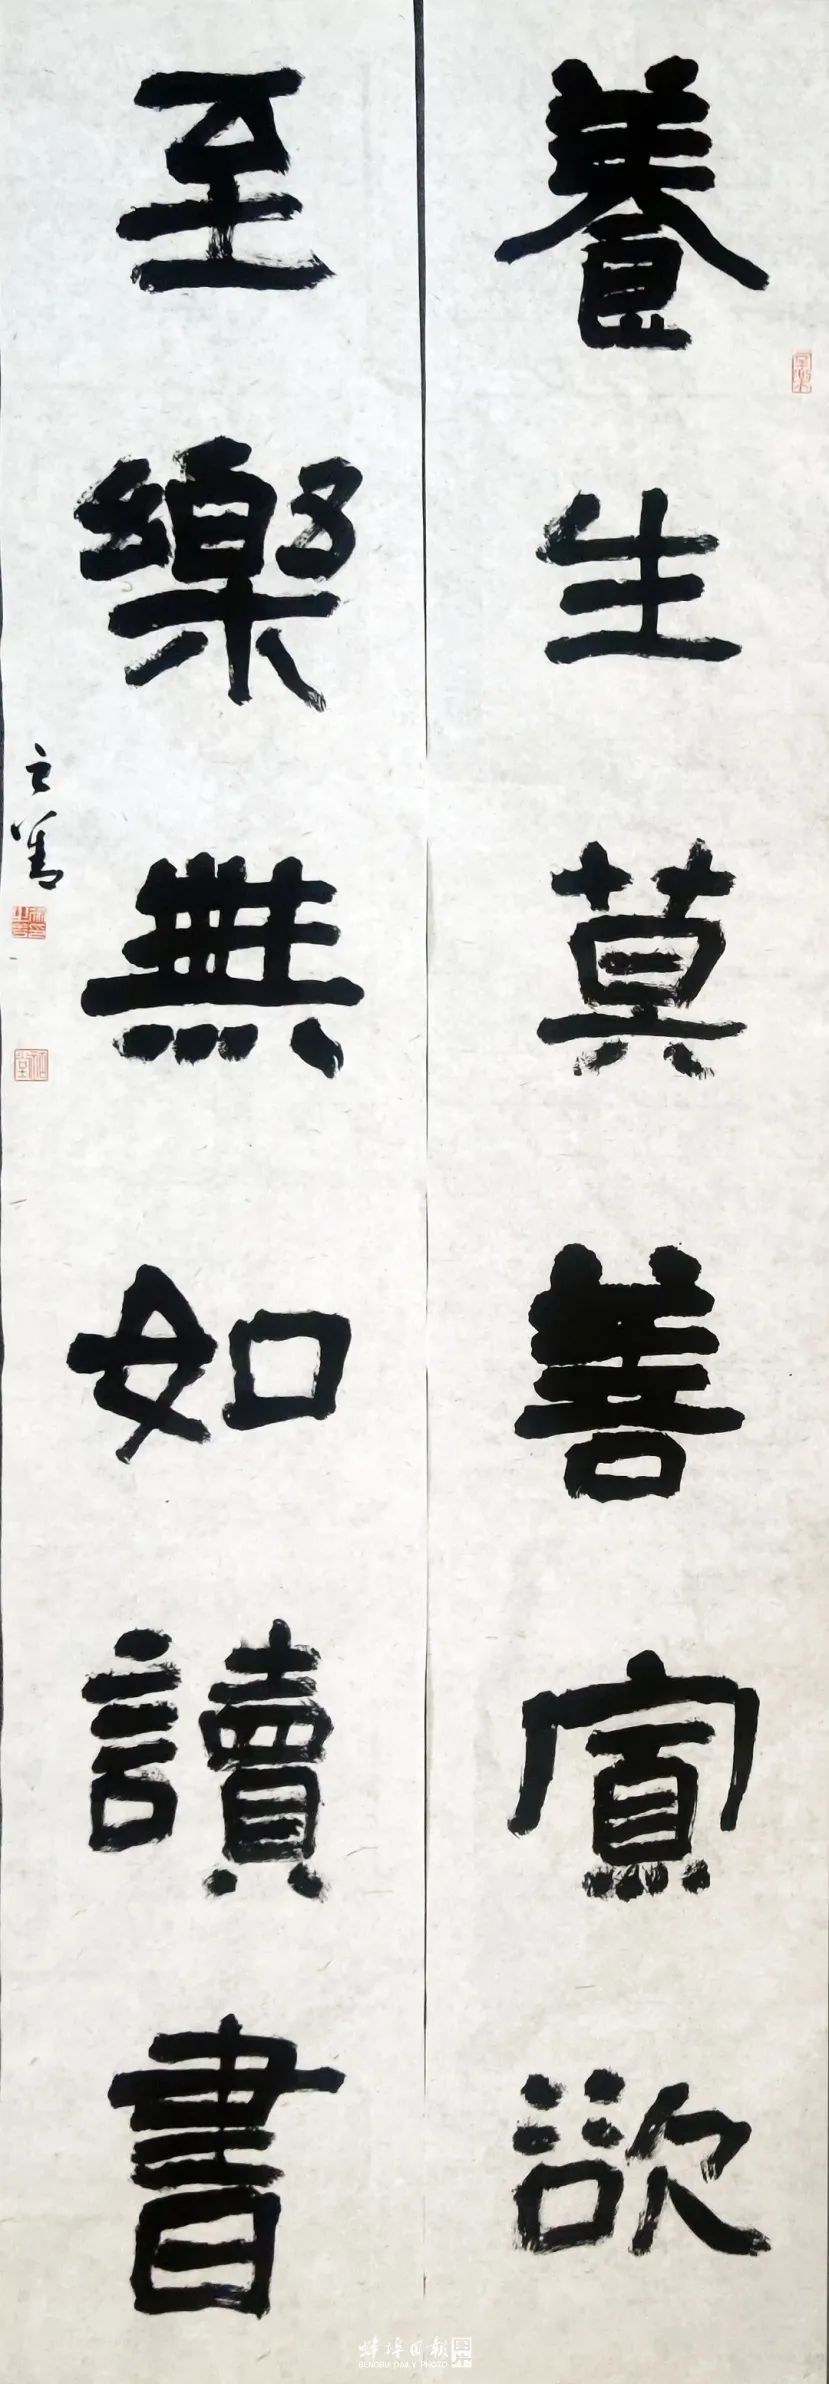 養生莫善寡欲
至樂無如讀書
之善
蚌埠日報
BENGBU DAILY PHOTO